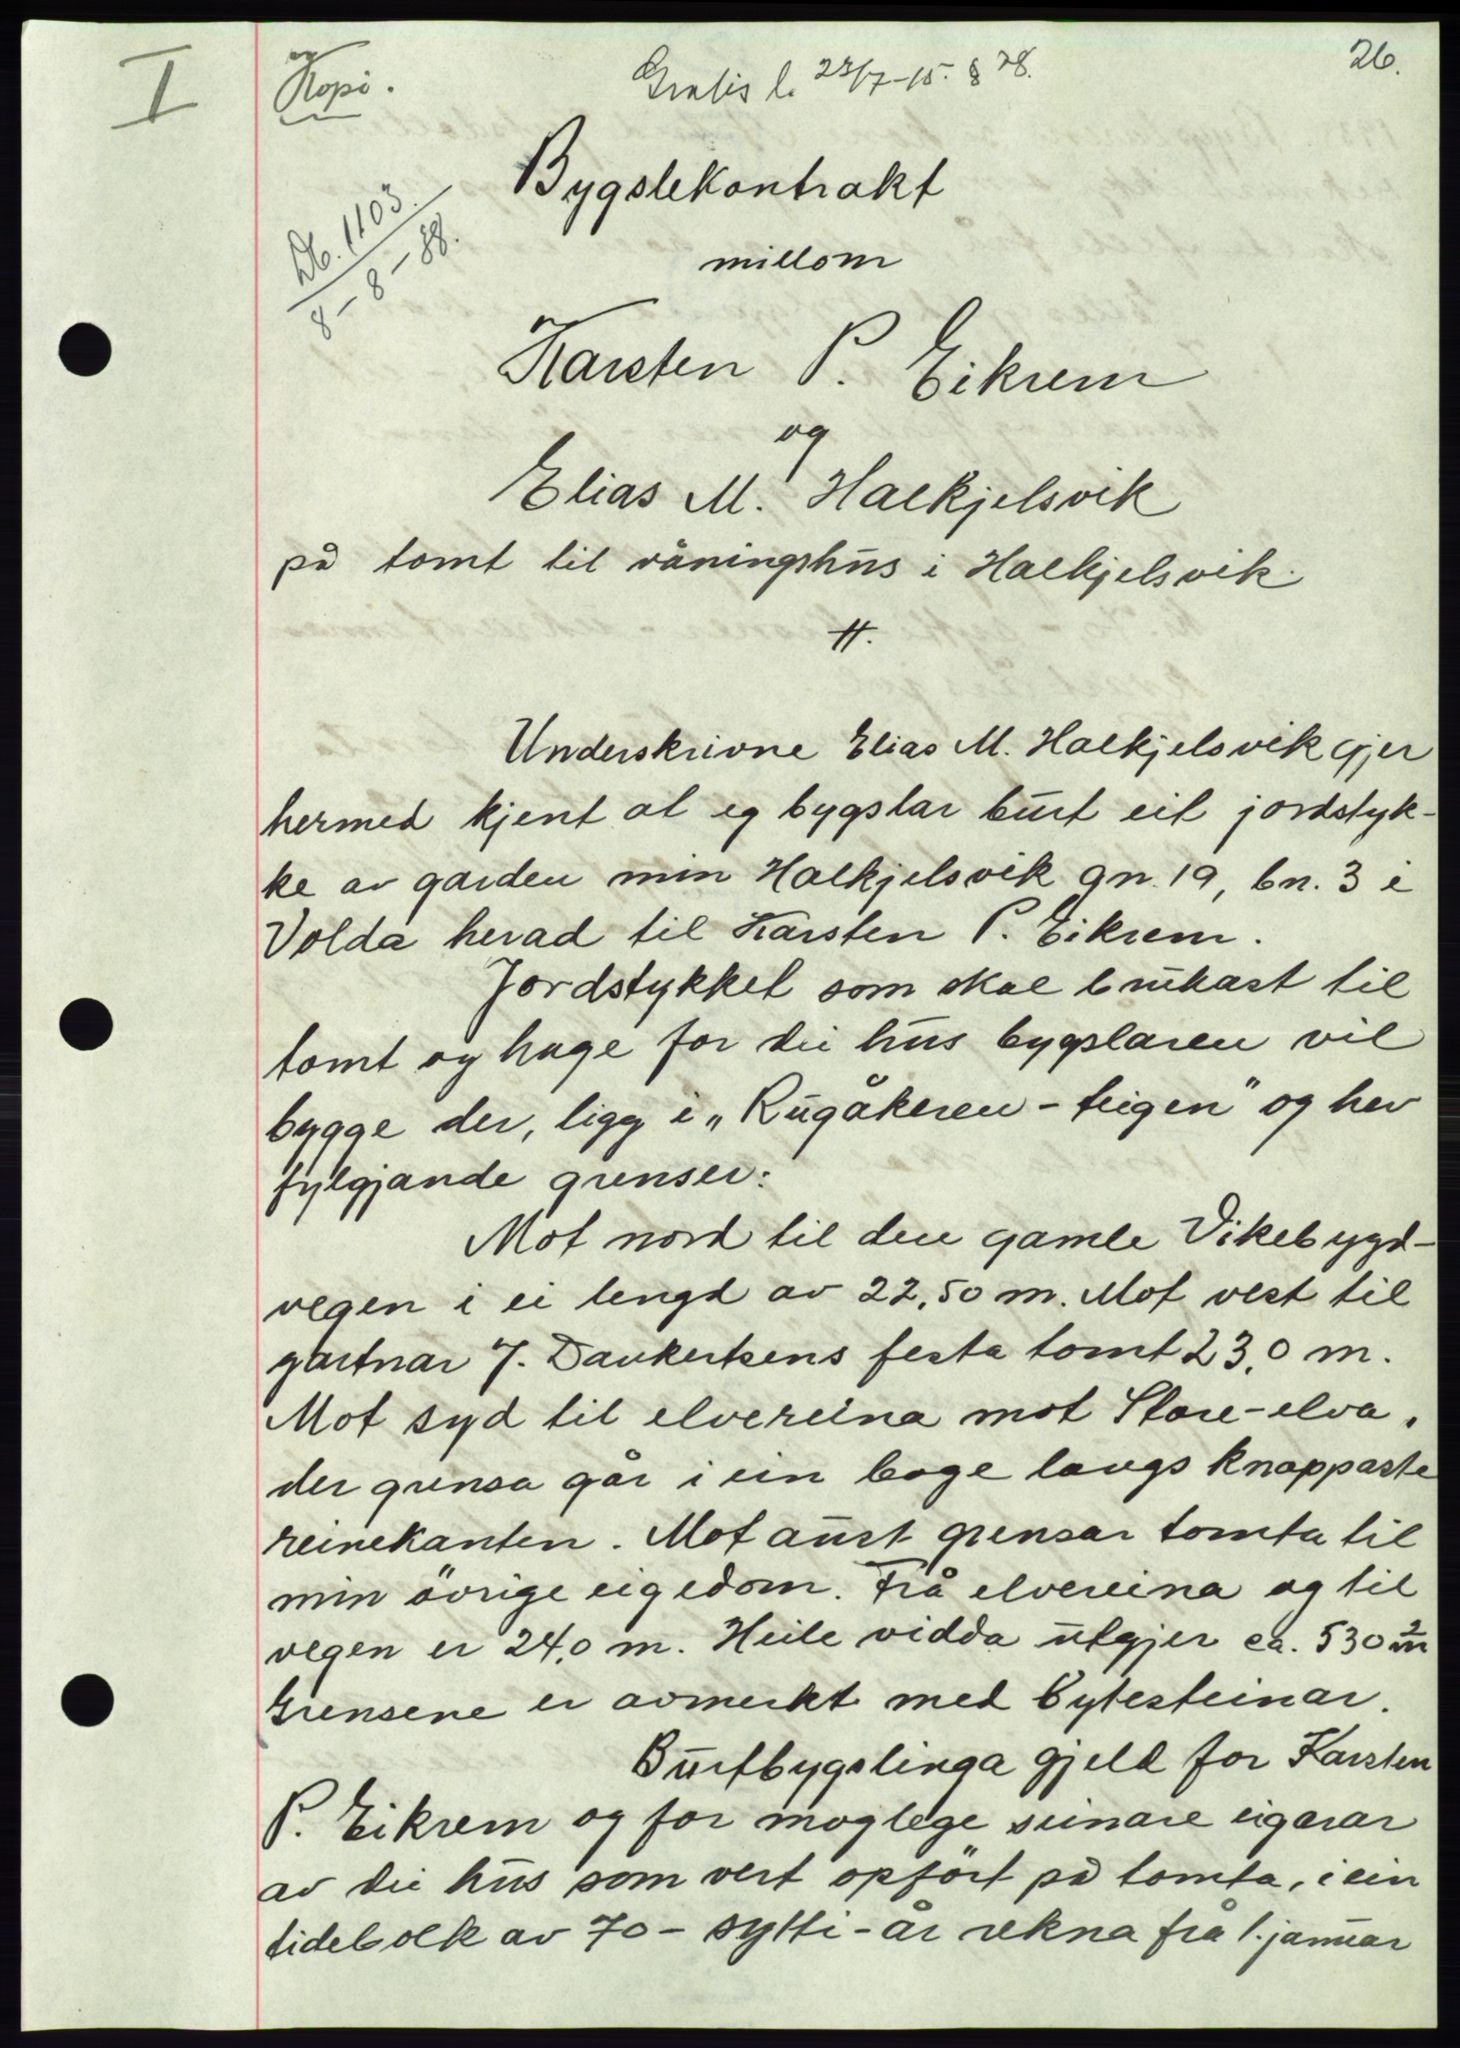 I
Kopi.
Gratis l. 23/7-15. § 28.
26.
Db. 1103.
8-8-38.
Bygslekontrakt
millom
Karsten P. Eikrem
og
Elias M. Halkjelsvik
på tomt til våningshus i Halkjelsvik.
Underskrivne Elias M. Halkjelsvik gjer
hermed kjent at eg bygslar burt eit jordstyk-
ke av garden min Halkjelsvik gn. 19, bn. 3 i
Volda herad til Karsten P. Eikrem.
Jordstykket som skal brukast til
tomt og hage for dei hus bygslaren vil
bygge der, ligg i „Rugåkeren-teigen" og hev
fylgjande grenser:
Mot nord til den gamle Vikebygd-
vegen i ei lengd av 22,50 m. Mot vest til
gartnar J. Dankertsens festa tomt 23,0 m.
Mot syd til elvereina mot Stare-elva,
der grensa går i ein boge langs knappaste
reinekanten. Mot aust grensar tomta til
min övrige eigedom. Frå elvereina og til
vegen er 24,0 m. Heile vidda utgjer ca. 530 m²
Grensene er avmerkt med bytesteinar.
Burtbygslinga gjeld for Karsten
P. Eikrem og for moglege seinare eigarar
av dei hus som vert opfört på tomta, i ein
tidebolk av 70 - sytti - år rekna frå 1. januar